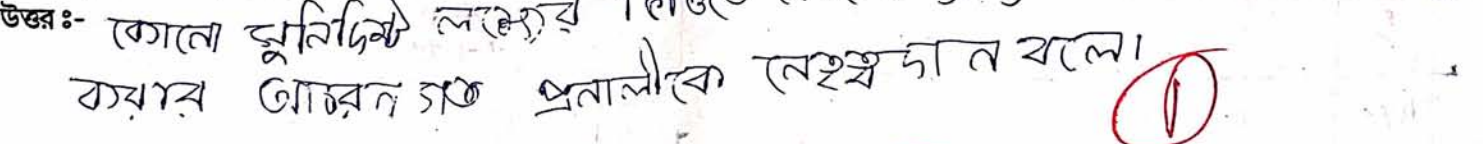 উত্তর :- কোনো সুনির্দিষ্ট লক্ষ্যের
করার আচরন গত প্রনালীকে নেতৃত্ব দান বলে।
1